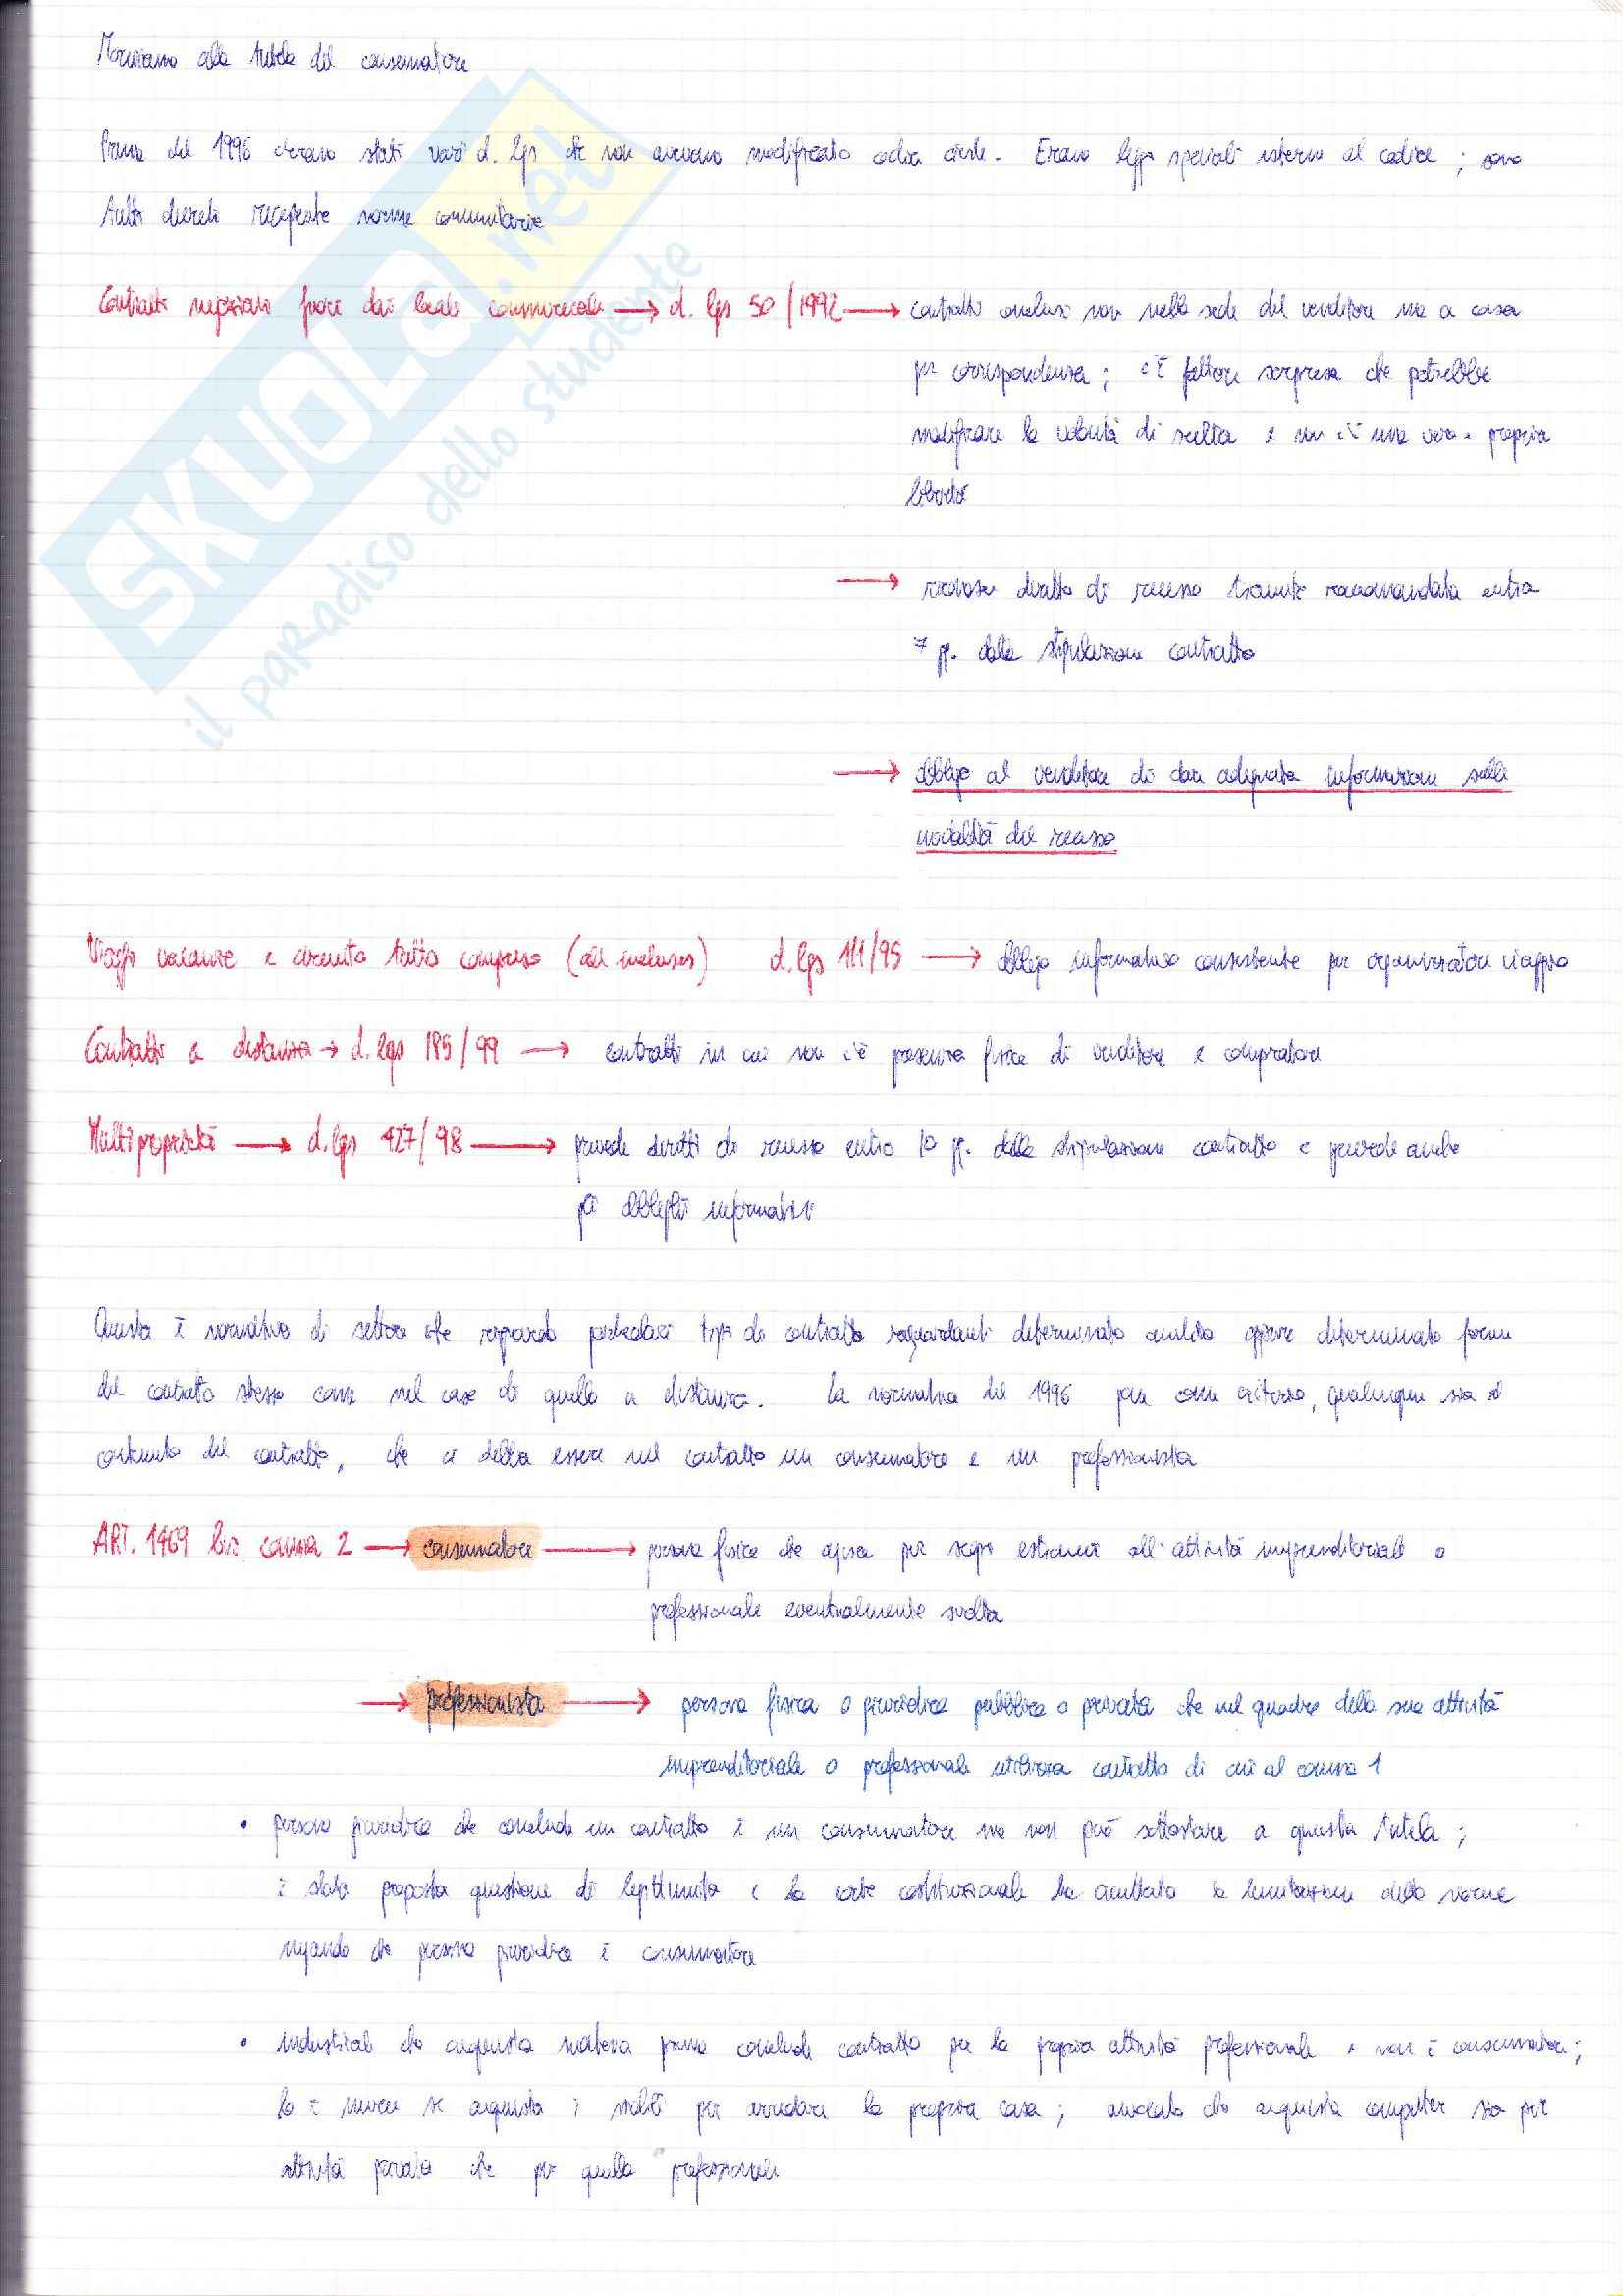 alla tutela del consumatore
Prima del 1996 c'erano stati vari d. lgs che non avevano modificato codice civile. Erano leggi speciali esterne al codice; sono
tutti decreti recepente norme comunitarie
Contratti negoziati fuori dai locali commerciali → d. lgs 50/1992 → contratti conclusi non nella sede del venditore ma a casa
per corrispondenza; c'è fattore sorpresa che potrebbe
modificare la volontà di scelta e non c'è una vera e propria
libertà
→ diritto di recesso tramite raccomandata entro
7 gg. dalla stipulazione contratto
→ obbligo al venditore di dare adeguata informazione sulle
modalità del recesso
Viaggi vacanze e circuito tutto compreso (all inclusive) d. lgs 111/95 → obbligo informativo consistente per organizzatore viaggio
Contratti a distanza → d. lgs 185/99 → contratti in cui non c'è presenza fisica di venditore e compratore
Multiproprietà → d. lgs 427/98 → prevede diritti di recesso entro 10 gg. dalla stipulazione contratto e prevede anche
gli obblighi informativi
Questa è normativa di settore che riguarda particolari tipi di contratto riguardanti determinato ambito oppure determinato forme
del contratto stesso come nel caso di quello a distanza. La normativa del 1996 pone come criterio, qualunque sia il
contenuto del contratto, che ci debba essere nel contratto un consumatore e un professionista
ART. 1469 bis comma 2 → consumatore → persona fisica che agisce per scopi estranei all'attività imprenditoriale o
professionale eventualmente svolta
→ professionista → persona fisica o giuridica pubblica o privata che nel quadro della sua attività
imprenditoriale o professionale utilizza contratto di cui al comma 1
• persona giuridica che conclude un contratto è un consumatore ma non può sottostare a questa tutela;
è stata proposta questione di legittimità e la corte costituzionale ha la limitazione della norma
negando che persona giuridica è consumatore
• industriale che acquista materia prima conclude contratto per la propria attività professionale e non è consumatore;
lo è invece se acquista i mobili per arredare la propria casa; avvocato che acquista computer sia per
attività privata che per quella professionale
SKUOLA.net
il paradiso dello studente